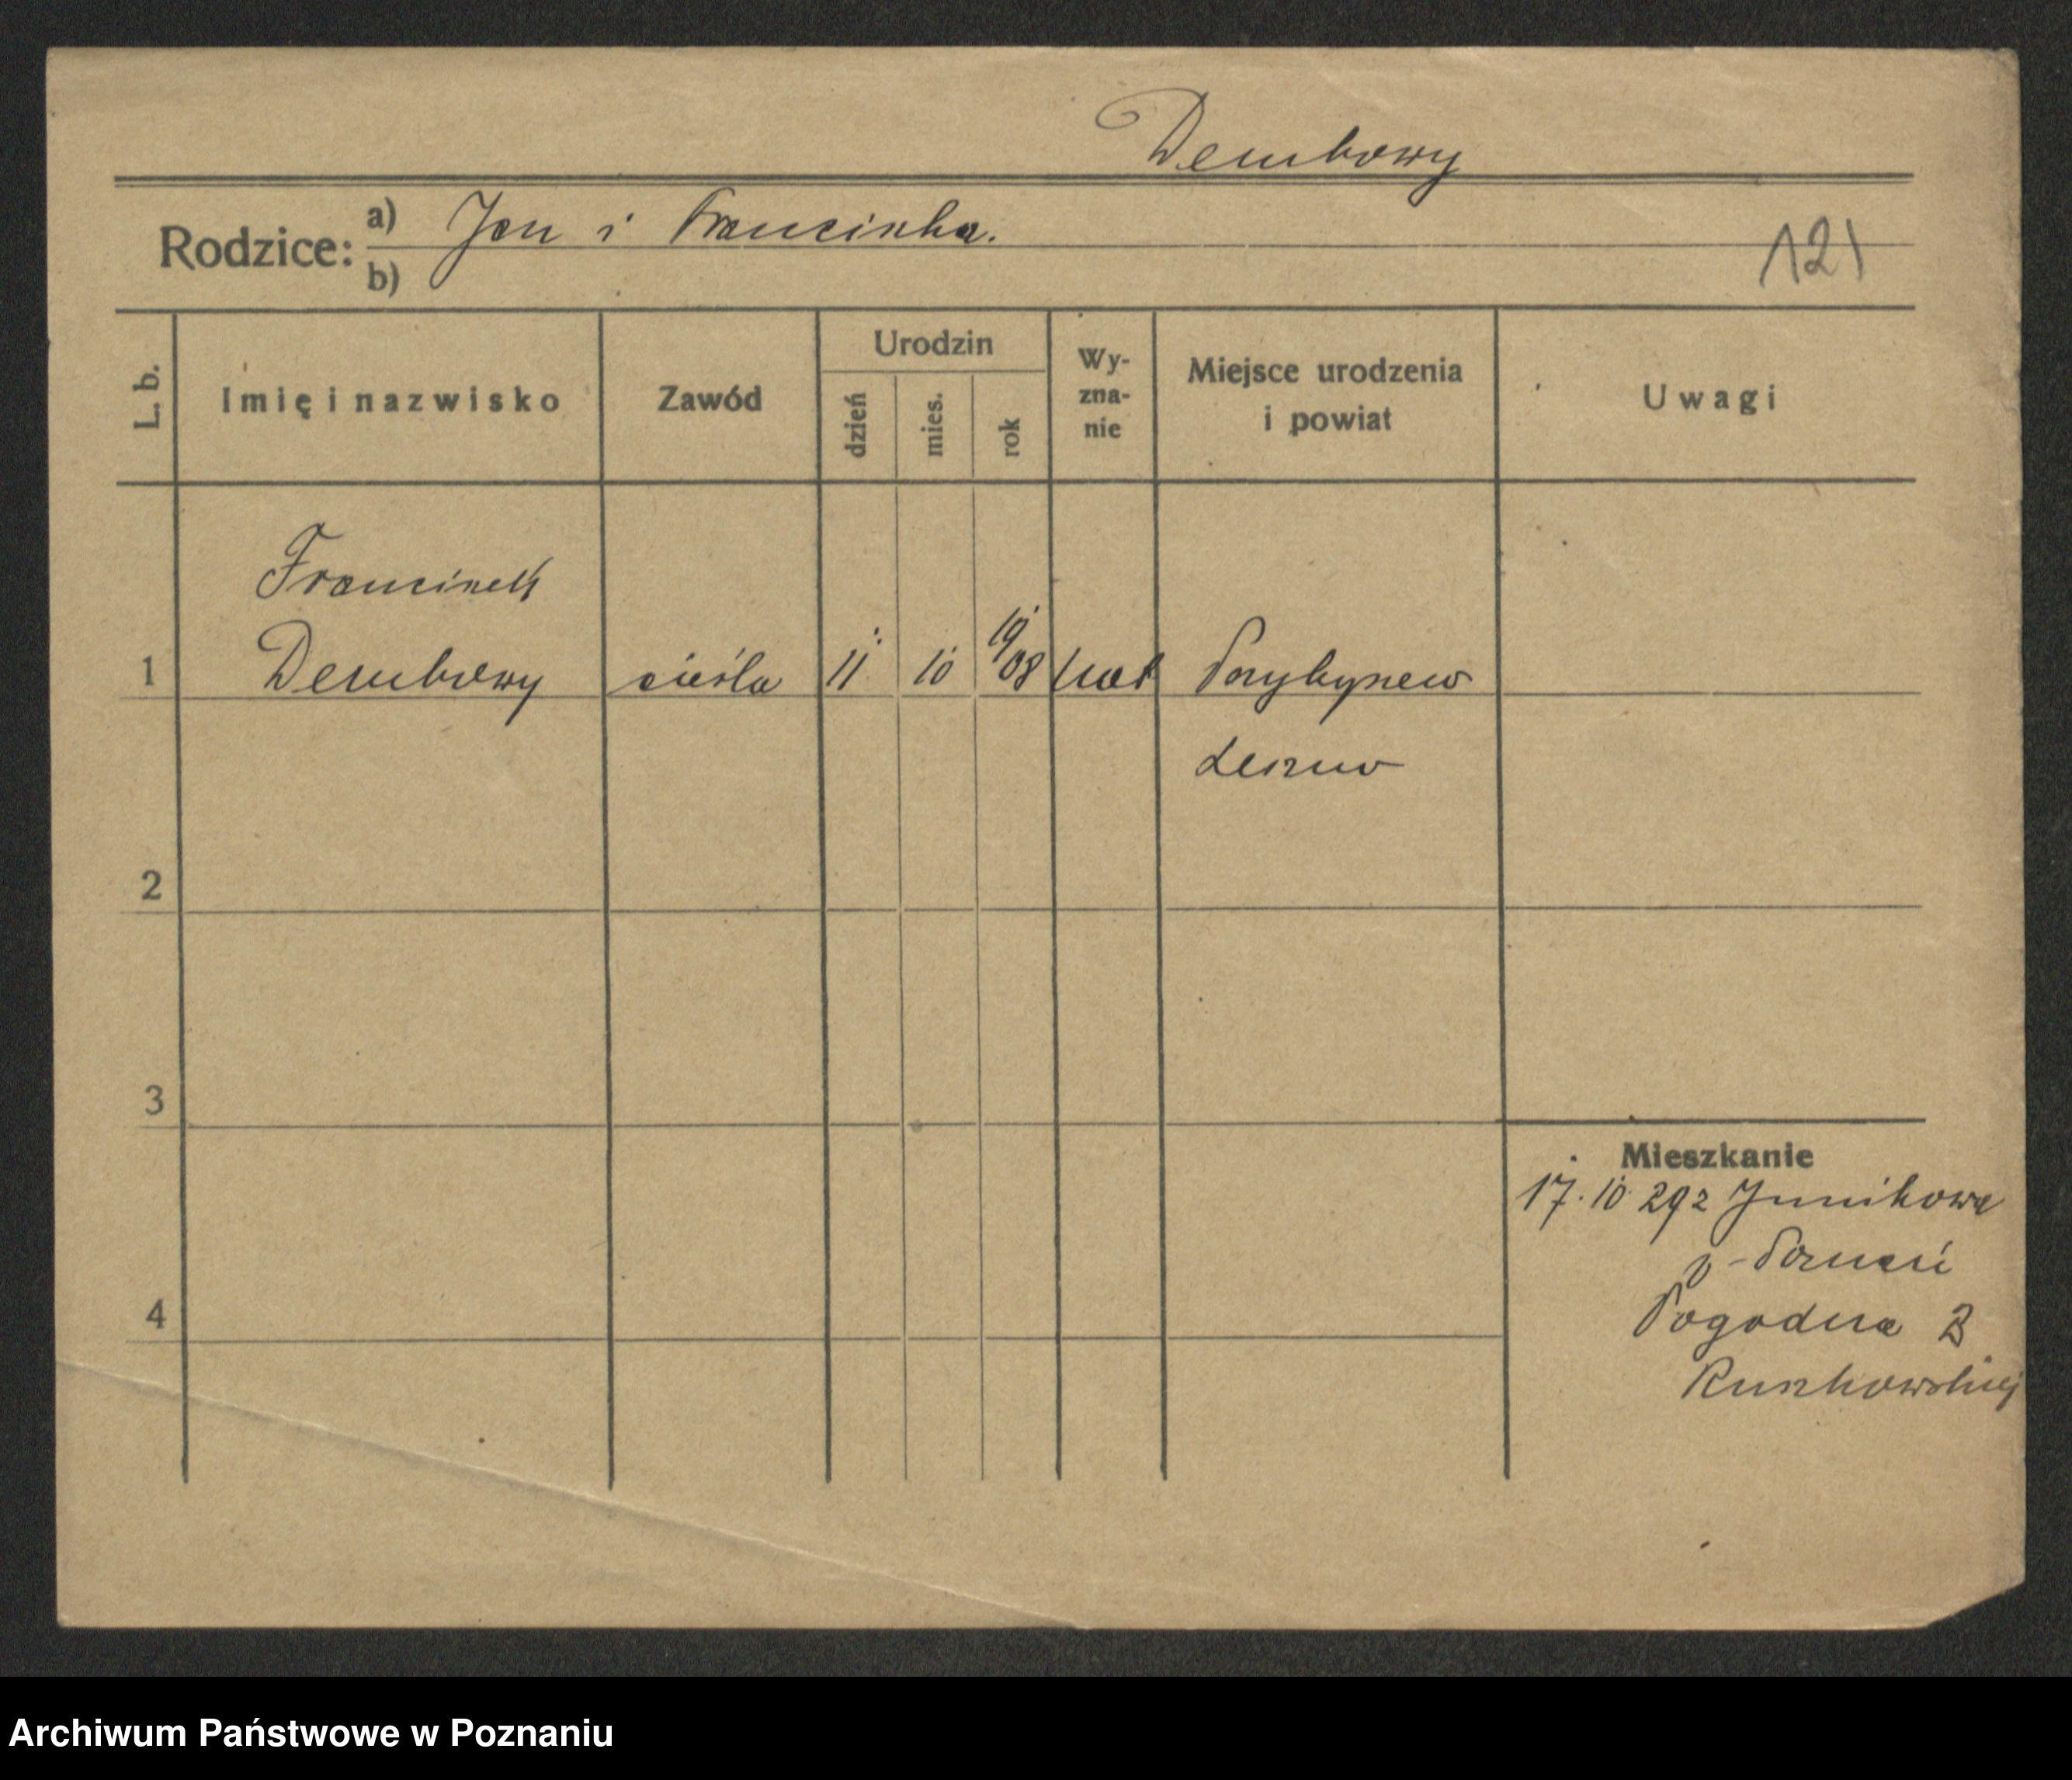 Dembowy
Rodzice: a) Jan i Franciszka.
b)
121
L. b. Imię i nazwisko Zawód Urodzin dzień mies. rok Wy-zna-nie Miejsce urodzenia i powiat Uwagi
Franciszek
1 Dembowy cieśla 11 10 1908 kat Przybyszew
Leszno
2
3
Mieszkanie
17. 10 29 z Junikowa
p-Poznań
Pogodna
4
Ruszkowskiej
Archiwum Państwowe w Poznaniu